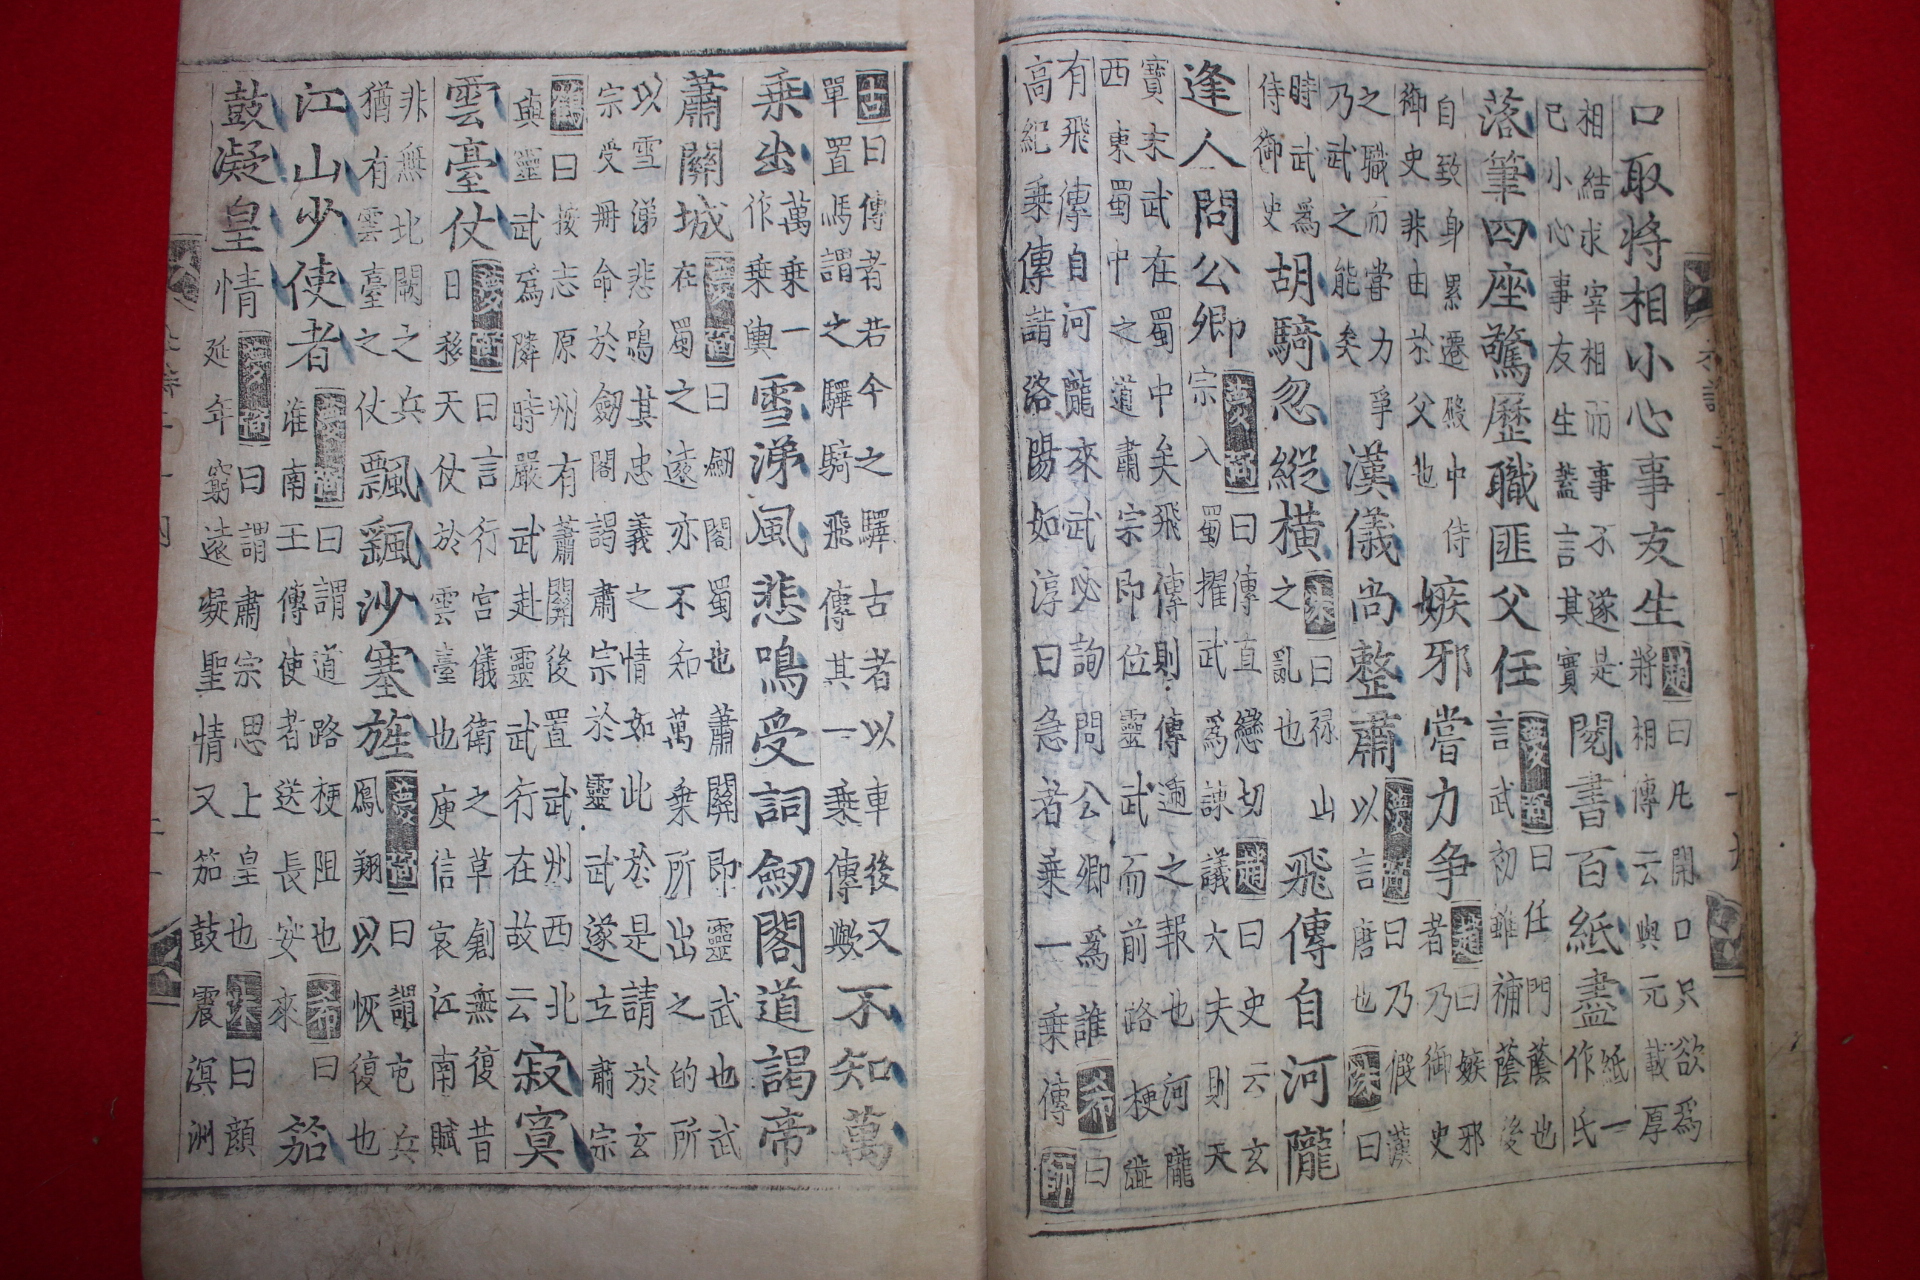 口取將相小心事友生趙曰凡開口只欲爲將相傳云與元載厚
相結求宰相而事不遂是已小心事友生蓋言其實閱書百紙盡紙一作氏
落筆四座驚歷職匪父任訁夢弼曰任門蔭也武初雖補蔭後
自致身累遷殿中侍御史非由於父也嫉邪嘗力爭趙曰嫉邪者乃御史
之職而嘗力爭乃武之能矣漢儀尚整肅夢弼曰乃假漢以言唐也曰
時武爲侍御史胡騎忽縱橫曰祿山之亂也飛傳自河隴
逢人問公卿夢弼曰傳直戀切趙曰史云玄宗入蜀擢武爲諫議大夫則天
寶末武在蜀中矣飛傳則傳遞之報也河隴西東蜀中之道肅宗即位靈武而前路梗澁
有飛傳自河隴來武必詢問公卿爲誰希曰高紀乘傳詣洛陽如淳曰急者乘一乘傳師
古曰傳者若今之驛古者以車後又單置馬謂之驛騎飛傳其一乘傳歟不知萬
乘出萬乘一作乘輿雪涕風悲鳴受詞劒閣道謁帝
蕭關城夢弼曰劒閣蜀也蕭關即靈武也武在蜀之遠亦不知萬乘所出之的所
以雪涕悲鳴其忠義之情如此於是請於玄宗受冊命於劒閣謁肅宗於靈武遂立肅宗
鶴曰按志原州有蕭關後置武州西北與靈武爲隣時嚴武赴靈武行在故云寂寞
雲臺仗夢弼曰言行宮儀衛之草創無復昔日移天仗於雲臺也庾信哀江南賦
非無北闕之兵猶有雲臺之仗飄飖沙塞旌夢弼曰謂屯兵鳳翔以恢復也
江山少使者夢弼曰謂道路梗阻也淮南王傳使者送長安來希曰笳
鼓凝皇情夢弼曰謂肅宗思上皇也曰顏延年窮遠凝聖情又笳鼓震溟洲